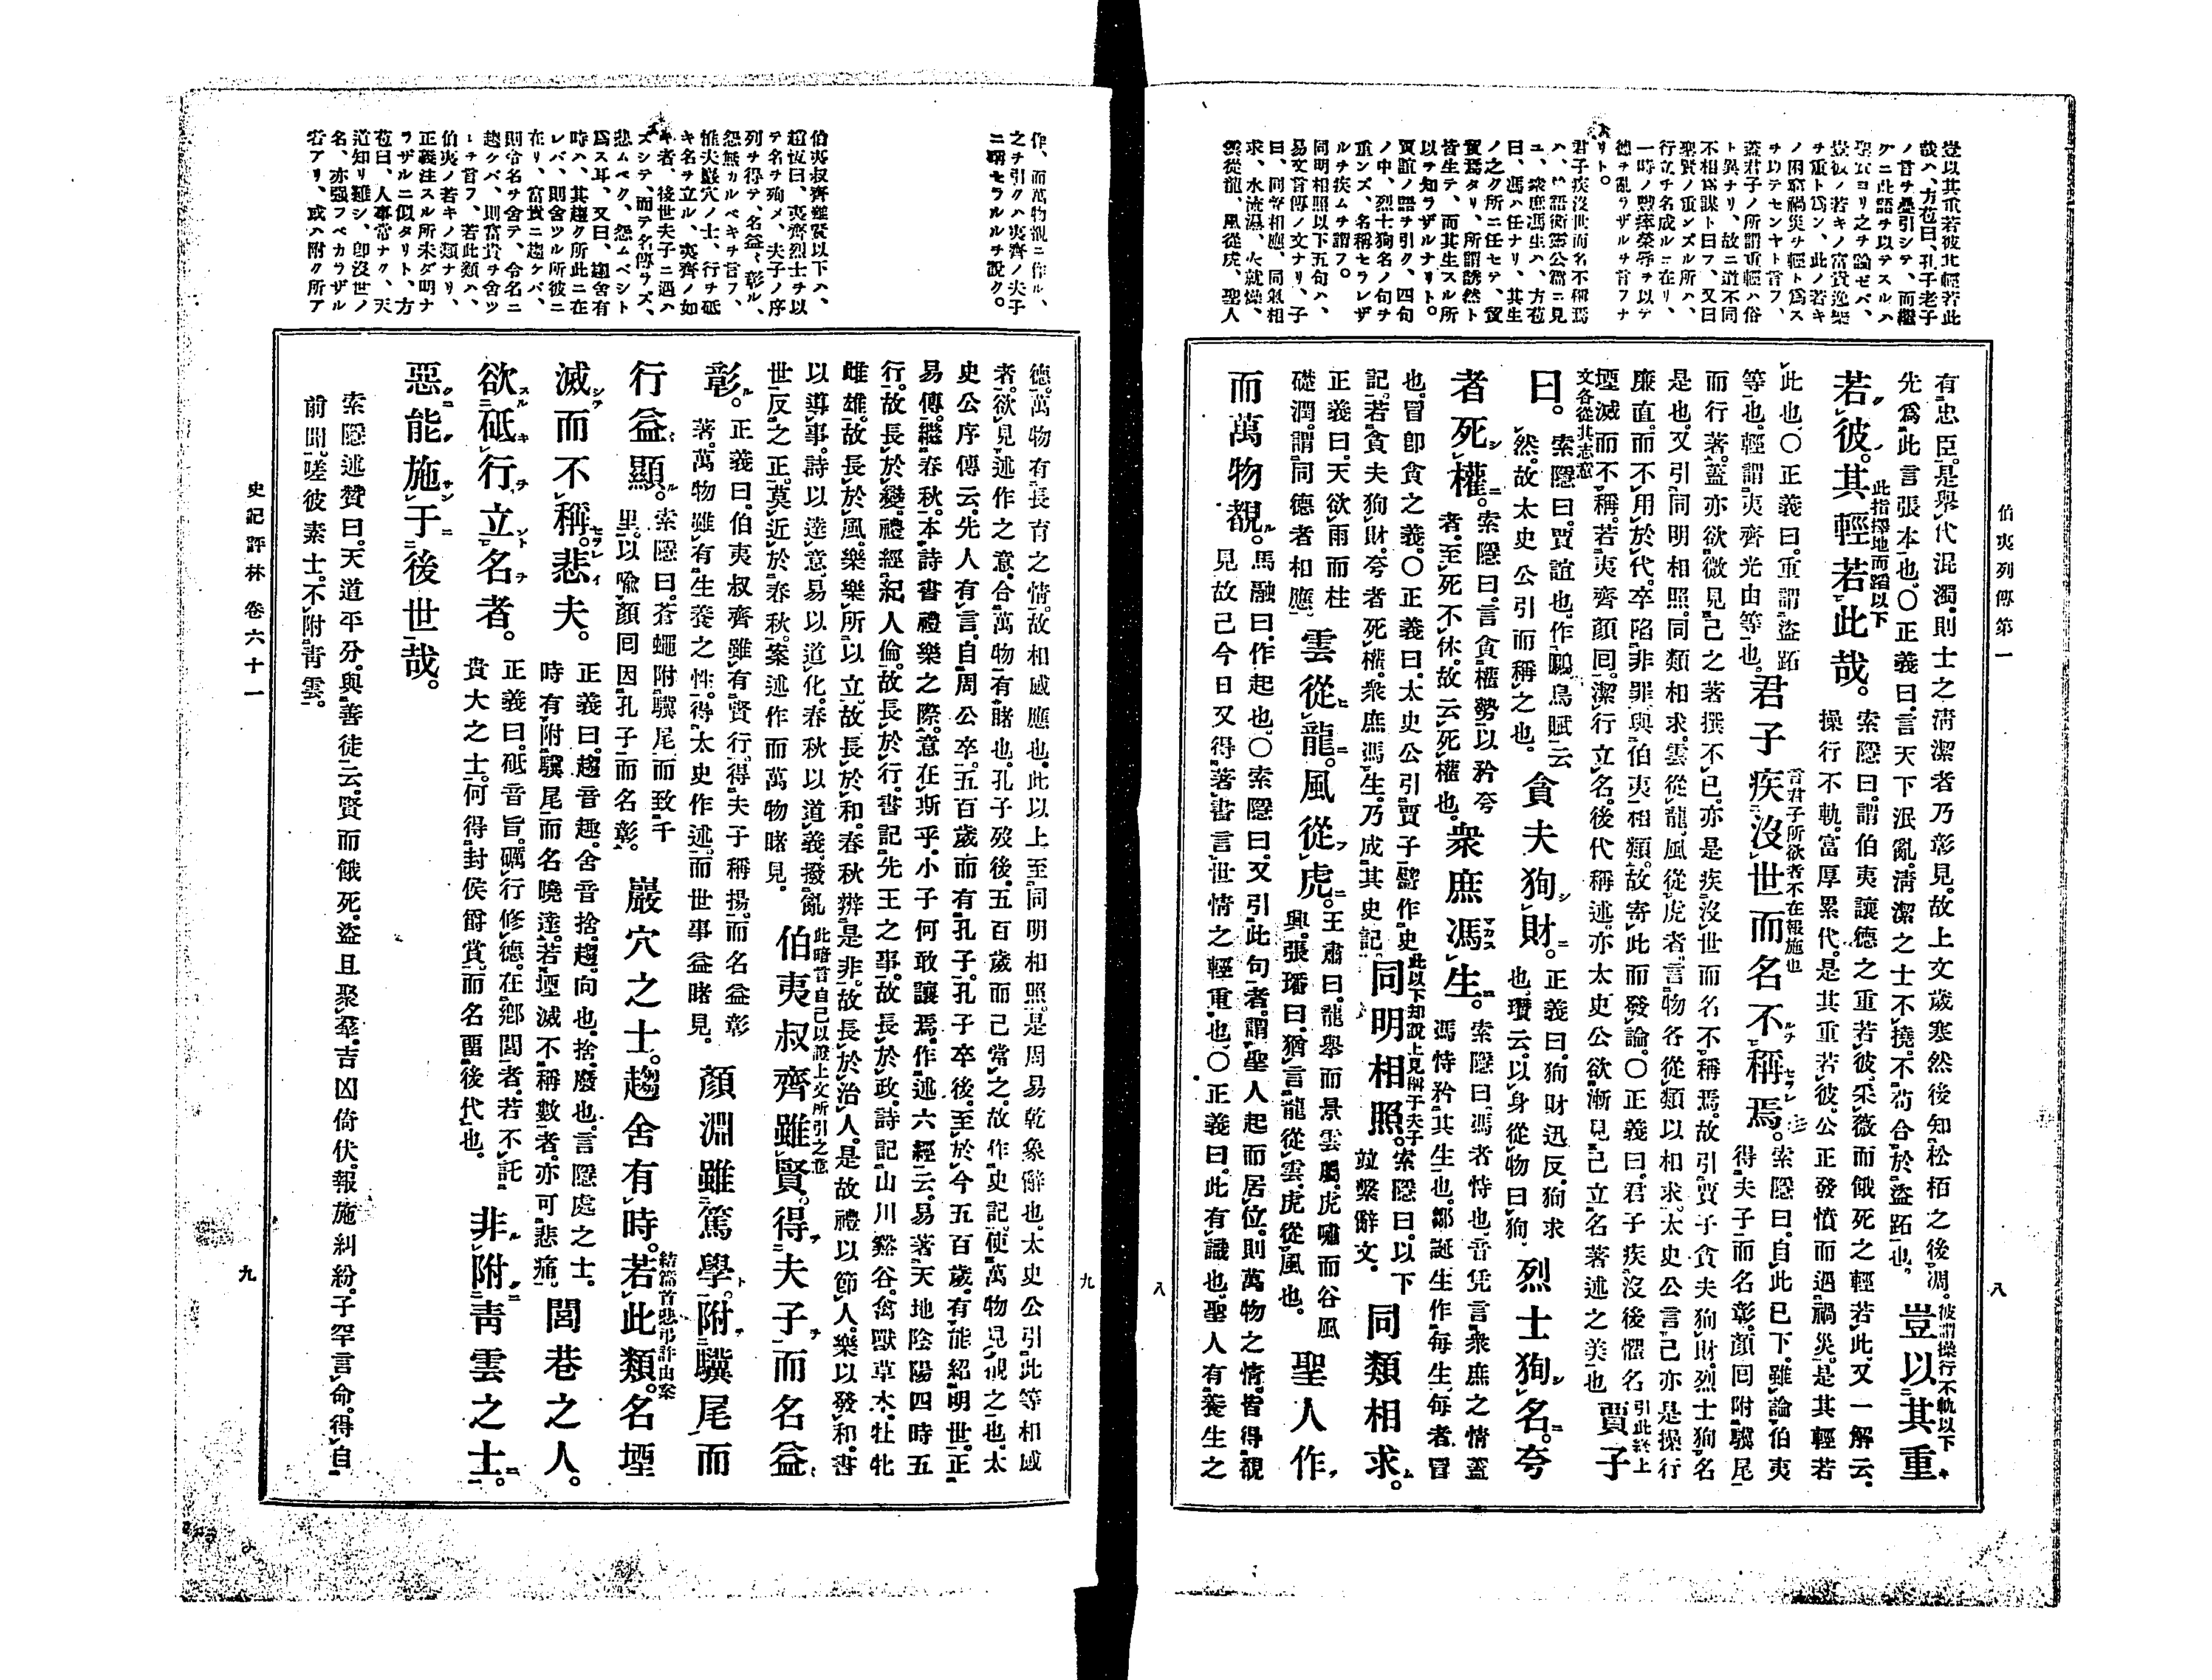 伯夷列傳第一
八
豈以其重若彼北輕若此
哉ハ、方苞曰、孔子老子
ノ言ヲ疊引シテ、而繼
グニ此語ヲ以テスルハ
聖賢ヨリ之ヲ論ゼバ、
豈彼ノ若キノ富貴逸樂
ヲ重ト爲ン、此ノ若キ
ノ困窮禍災ヲ輕ト爲ス
ヲ以テセンヤト言フ、
蓋君子ノ所謂重輕ハ俗
ト異ナリ、故ニ道不同
不相爲謀ト曰フ、又曰
聖賢ノ重ンズル所ハ、
行立チ名成ルニ在リ、
一時ノ榮辱ヲ以テ
德ヲ亂ラザルヲ言フナ
リト。
君子疾沒世而名不稱焉
ハ、論語衞靈公篇ニ見
ユ、衆庶馮生ハ、方苞
曰、馮ハ任ナリ、其生
ノ之ク所ニ任セテ、貿
貿焉タリ、所謂誘然ト
皆生テ、而其生スル所
以ヲ知ラザルナリト。
賈誼ノ語ヲ引ク、四句
ノ中、烈士徇名ノ句ヲ
重ンズ、名稱セラレザ
ルヲ疾ムヲ謂フ。
同明相照以下五句ハ、
易文言傳ノ文ナリ、子
曰、同聲相應、同氣相
求、水流濕、火就燥、
雲從龍、風從虎、聖人
有忠臣。是擧代混濁、則士之淸潔者乃彰見。故上文歲寒然後知松栢之後凋。彼謂操行不軌以下
先爲此言張本也。〇正義曰。言天下泯亂。淸潔之士不撓。不苟合於盜跖也。豈以其重
若彼。其輕若此哉。此指擇地而蹈以下索隱曰。謂伯夷讓德之重若彼。采薇而餓死之輕若此。又一解云。
操行不軌。富厚累代。是其重若彼。公正發憤而遇禍災。是其輕若
此也。〇正義曰。重謂盜跖
等也。輕謂夷齊光由等也。君子疾沒世而名不稱焉。言君子所欲者不在報施也索隱曰。自此已下。雖論伯夷
得夫子而名彰。顏回附驥尾
而行著。蓋亦欲微見己之著撰不已。亦是疾沒世而名不稱焉。故引賈子貪夫徇財。烈士徇名
是也。又引同明相照。同類相求。雲從龍。風從虎者。言物各從類以相求。太史公言己亦是操行
廉直。而不用於代。卒陷非罪。與伯夷相類。故寄此而發論。〇正義曰。君子疾沒後懼名
堙滅而不稱。若夷齊顏回。潔行立名。後代稱述。亦太史公欲漸見己立名著述之美也引此終上
文各從其志意賈子
曰。索隱曰。賈誼也。作鵩鳥賦云
然。故太史公引而稱之也。貪夫徇財。正義曰。徇財迅反。徇求
也。瓚云。以身從物曰徇。烈士徇名。夸
者死權。索隱曰。言貪權勢以矜夸
者。至死不休。故云死權也。衆庶馮生。索隱曰。馮者恃也。音凭。言衆庶之情。蓋
馮恃矜其生也。鄒誕生作每生。每者冒
也。冒卽貪之義。〇正義曰。太史公引賈子譬作史
記。若貪夫徇財。夸者死權。衆庶馮生。乃成其史記。此以下却說上見稱于夫子同明相照。索隱曰。以下
竝繫辭文。同類相求。
正義曰。天欲雨而柱
礎潤。謂同德者相應雲從龍。風從虎。王肅曰。龍擧而景雲屬。虎嘯而谷風
興。張璠曰。猶言龍從雲。虎從風也。聖人作。
而萬物覩。馬融曰。作起也。〇索隱曰。又引此句者。謂聖人起而居位。則萬物之情。皆得覩
見。故己今日又得著書言世情之輕重也。〇正義曰。此有識也。聖人有養生之
八
作、而萬物覩ニ作ル、
之ヲ引クハ夷齊ノ夫子
ニ稱セラルルヲ說ク。
伯夷叔齊雖賢以下ハ、
趙恆曰、夷齊烈士ヲ以
テ名ヲ殉メ、夫子ノ序
列ヲ得テ、名益〻彰ル、
怨無カルベキヲ言フ、
惟夫巖穴ノ士、行ヲ砥
キ名ヲ立ル、夷齊ノ如
キ者、後世夫子ニ遇ハ
ズシテ、而テ名傳ラズ、
悲ムベク、怨ムベシト
爲ス耳、又曰、趨舍有
時ハ、其趨ク所此ニ在
レバ、則舍ツル所彼ニ
在リ、富貴ニ趨ケバ、
則令名ヲ舍テ、令名ニ
趨ケバ、則富貴ヲ舍ツ
ルヲ言フ、若此類ハ、
伯夷ノ若キノ類ナリ、
正義注スル所未ダ明ナ
ラザルニ似タリト、方
苞曰、人事常ナク、天
道知リ難シ、卽沒世ノ
名、亦强フベカラザル
者アリ、或ハ附ク所ア
德。萬物有長育之情。故相感應也。此以上至同明相照。是周易乾象辭也。太史公引此等相感
者。欲見述作之意。合萬物有睹也。孔子歿後。五百歲而己當之。故作史記。使萬物見覩之也。太
史公序傳云。先人有言。自周公卒。五百歲而有孔子。孔子卒後。至於今五百歲。有能紹明世。正
易傳。繼春秋。本詩書禮樂之際。意在斯乎。小子何敢讓焉。作述六經云。易著天地陰陽四時五
行。故長於變。禮經紀人倫。故長於行。書記先王之事。故長於政。詩記山川谿谷。禽獸草木。牡牝
雌雄。故長於風。樂樂所以立。故長於和。春秋辨是非。故長於治人。是故禮以節人。樂以發和。書
以導事。詩以達意。易以道化。春秋以道義。撥亂
世反之正。莫近於春秋。案述作而萬物睹見。此暗言自己以證上文所引之意伯夷叔齊雖賢。得夫子而名益
彰。正義曰。伯夷叔齊雖有賢行。得夫子稱揚。而名益彰
著。萬物雖有生養之性。得太史作述。而世事益睹見。顏淵雖篤學。附驥尾而
行益顯。索隱曰。蒼蠅附驥尾而致千
里。以喩顏回因孔子而名彰。巖穴之士。趨舍有時。若此類。結篇首悲弔許由案名堙
滅而不稱。悲夫。正義曰。趨音趣。舍音捨。趨。向也。捨。廢也。言隱處之士。
時有附驥尾而名曉達。若堙滅不稱數者。亦可悲痛。閭巷之人。
欲砥行立名者。正義曰。砥音旨。礪行修德。在鄕閭者。若不託
貴大之士。何得封侯爵賞。而名留後代也。非附靑雲之士。
惡能施于後世哉。
索隱述贊曰。天道平分。與善徒云。賢而餓死。盜且聚羣。吉凶倚伏。報施糾紛。子罕言命。得自
前聞。嗟彼素士。不附靑雲。
九
史記評林 卷六十一
九